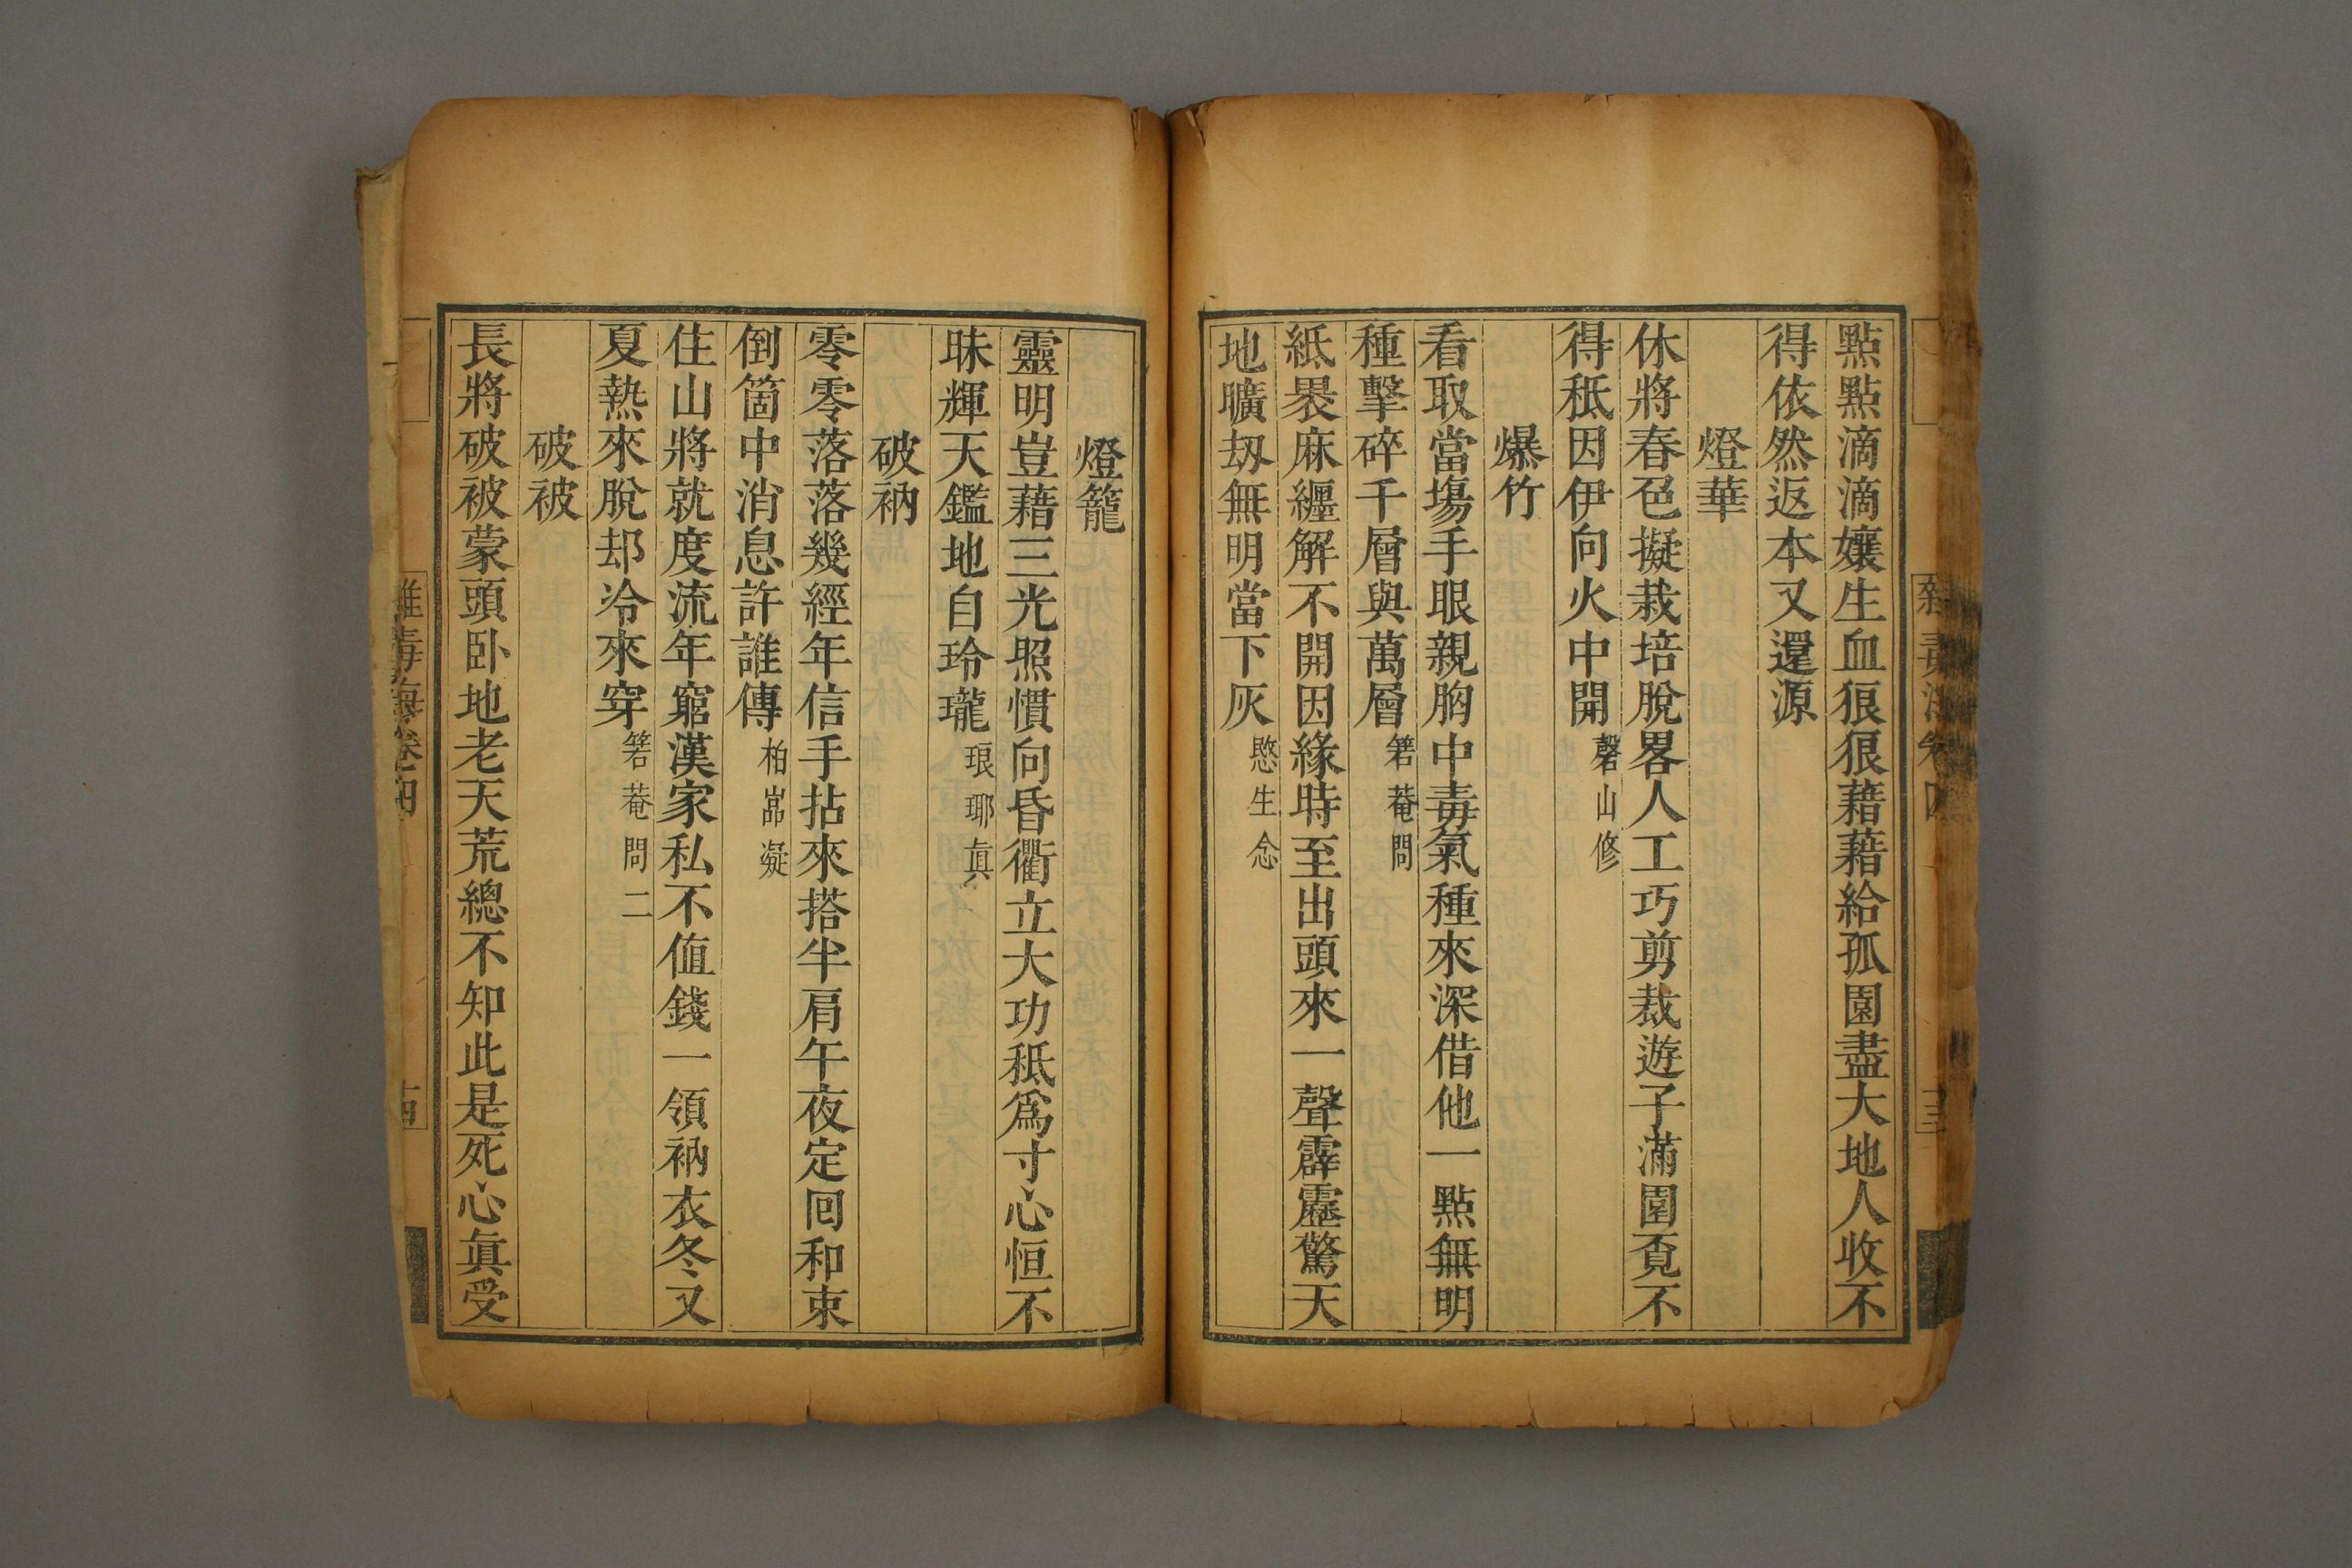 點點滴滴孃生血狠狠藉藉給孤園盡大地人收不
得依然返本又還源
燈華
休將春色擬栽培脫畧人工巧剪裁遊子滿園覔不
得秖因伊向火中開 磬山修
爆竹
看取當塲手眼親胸中毒氣種來深借他一點無明
種擊碎千層與萬層 箬菴問
紙褁麻纏解不開因緣時至出頭來一聲霹靂驚天
地曠刼無明當下灰 愍生念
燈籠
靈明豈藉三光照慣向昏衢立大功秖爲寸心恒不
昧輝天鑑地自玲瓏 琅琊眞
破衲
零零落落幾經年信手拈來搭半肩午夜定囘和束
倒箇中消息許誰傳 柏嵓凝
住山將就度流年窮漢家私不値錢一領衲衣冬又
夏熱來脫却冷來穿 箬菴問二
破被
長將破被蒙頭卧地老天荒總不知此是死心眞受
雜毒海卷四
十四